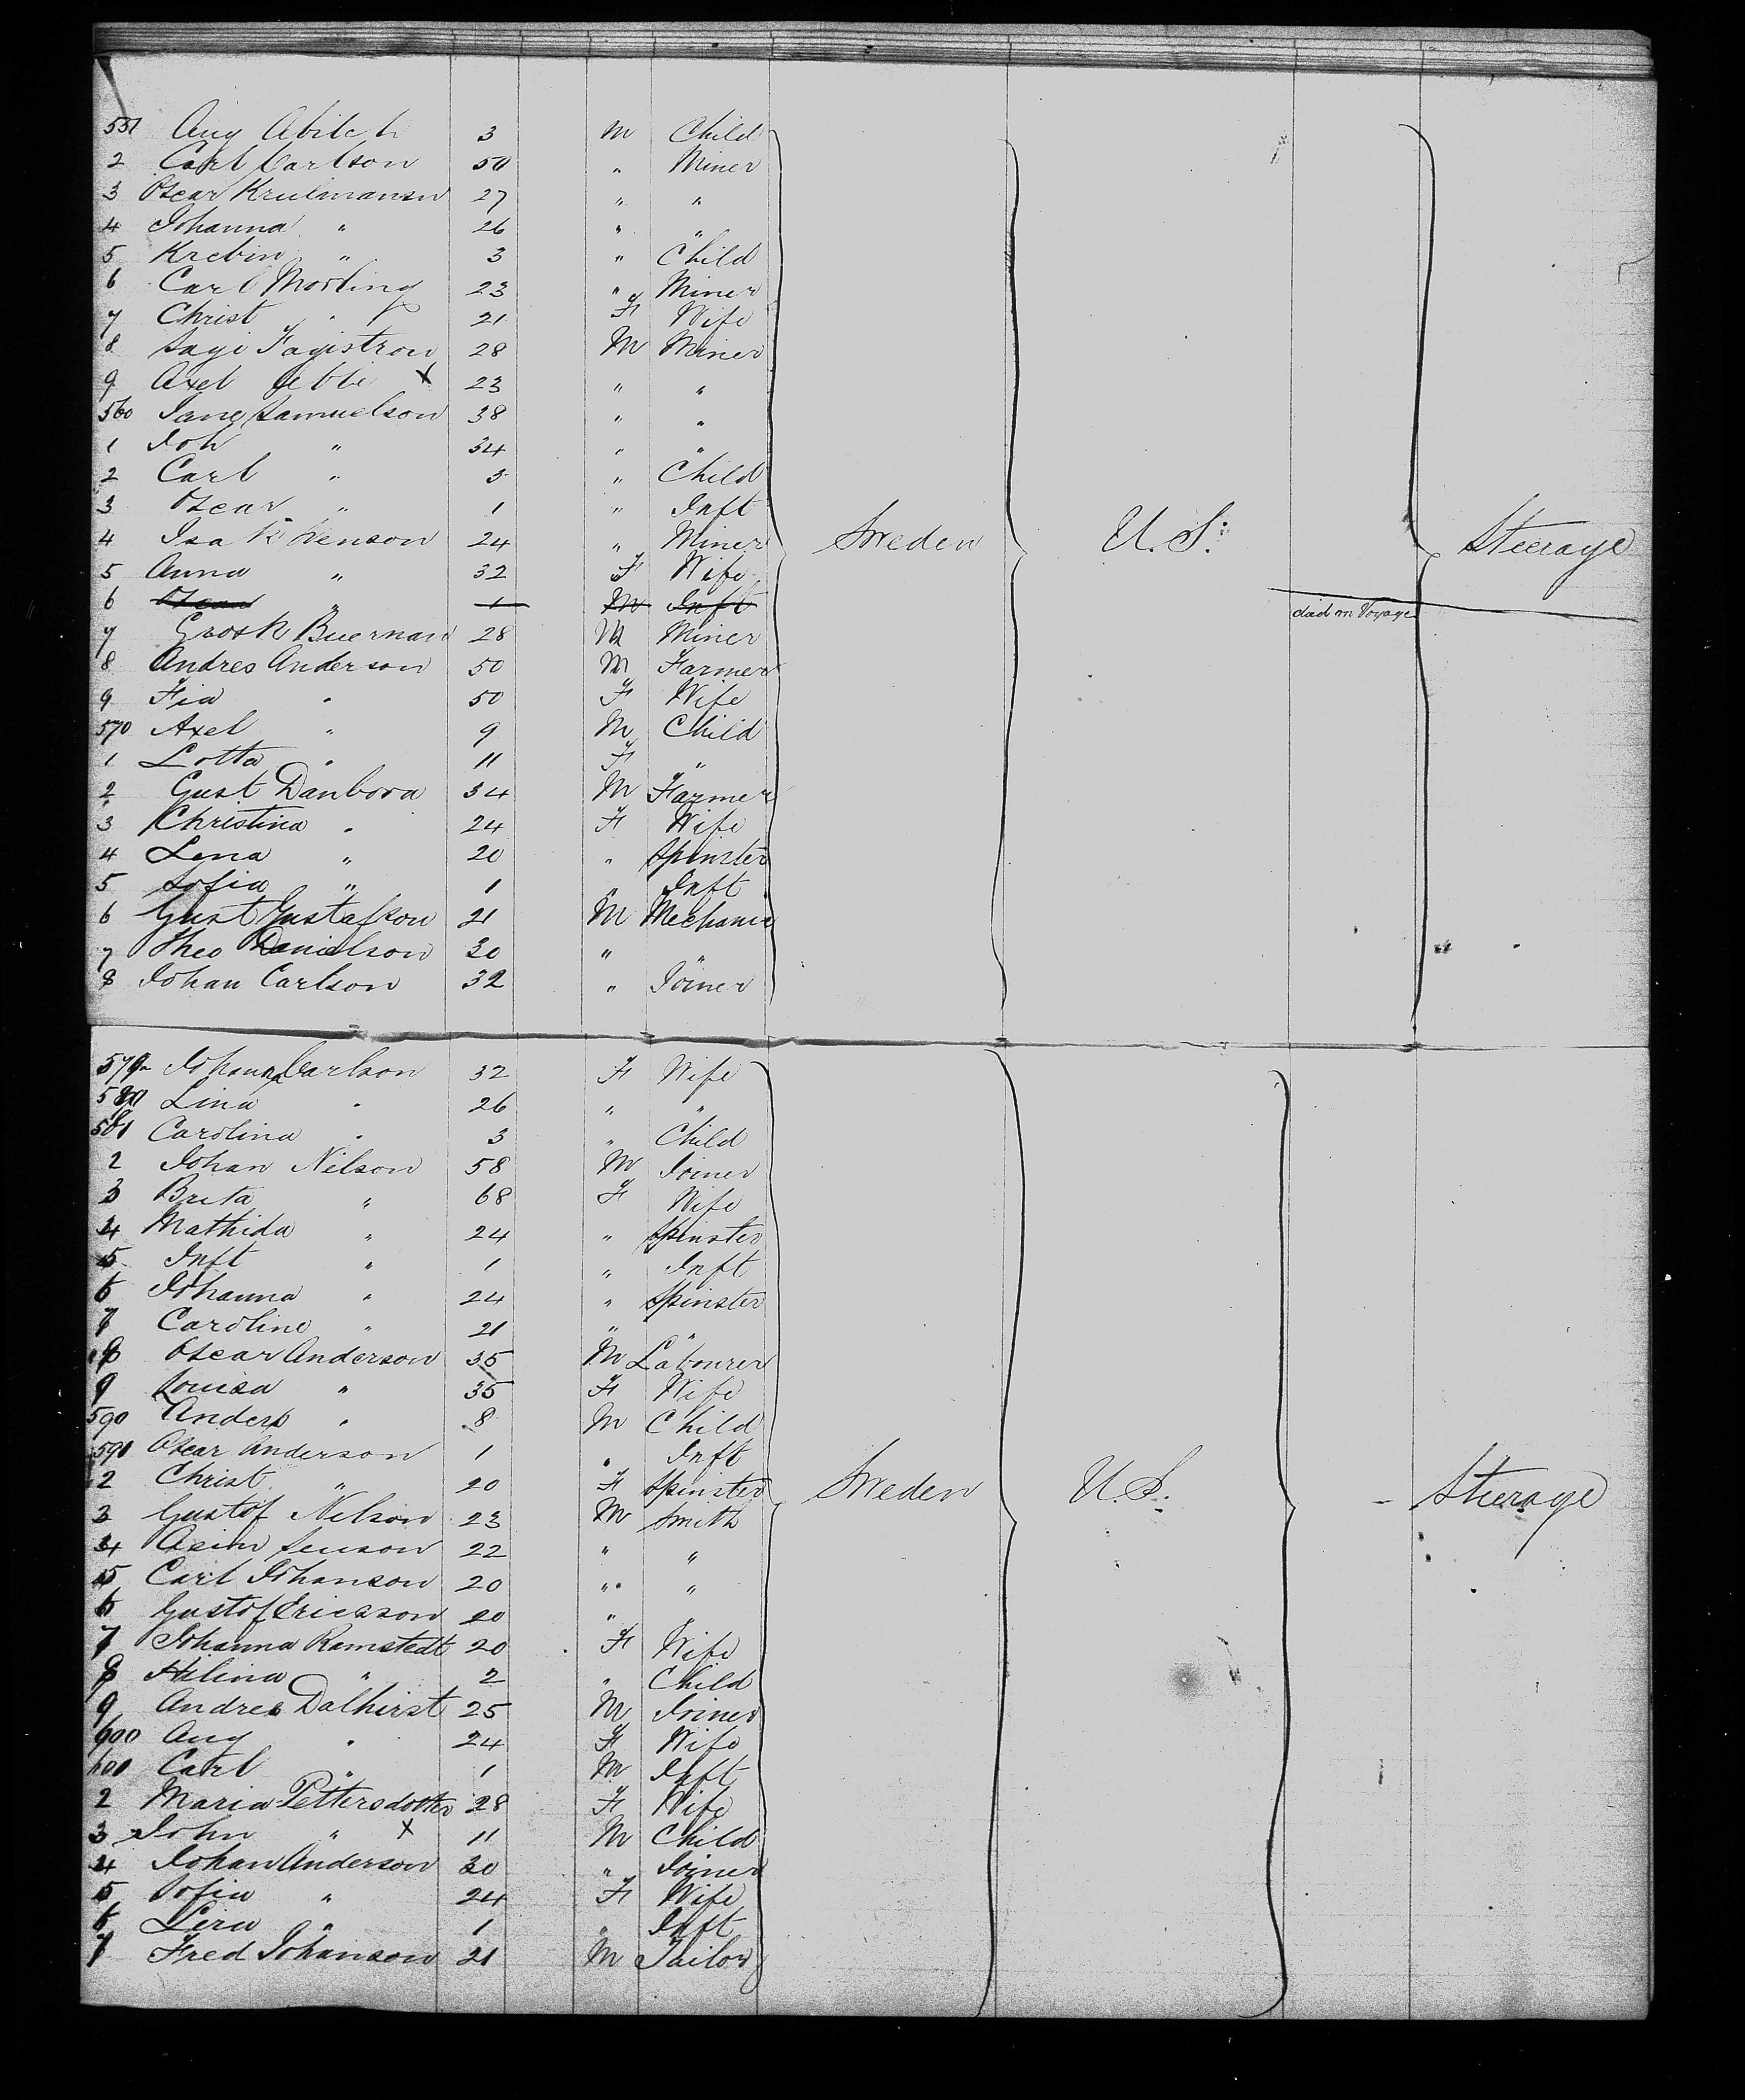 551 Aug Abitch 3 M Child
2 Carl Carlson 50 " Miner
3 Oscar Krulmansn 27 " "
4 Johanna " 26 " "
5 Krebin " 3 " Child
6 Carl Morling 23 " Miner
7 Christ " 21 F Wife
8 Sage Fagistrom 28 M Miner
9 Axel X 23 " "
560 Jang Samuelson 38 " "
1 Joh " 34 " "
2 Carl " 3 " Child
3 Oscar " 1 " Inft
4 Isa 24 " Miner Sweden U.S. Steerage
5 Anna " 32 F Wife
6 Oscar " 1 M Inft died on Voyage
7 Grosk Buernan 28 M Miner
8 Andres Anderson 50 M Farmer
9 Fia " 50 F Wife
570 Axel " 9 M Child
1 Lotta " 11 F "
2 Gust Danbora 34 M Farmer
3 Christina " 24 F Wife
4 Lena " 20 " Spinster
5 Sofia " 1 " Inft
6 Gust Gustafson 21 M Mechanic
7 Theo Danielson 30 " "
8 Johan Carlson 32 " Joiner
579 Johanna Carlson 32 F Wife
580 Lina " 26 " "
581 Carolina " 3 " Child
2 Johan Nilson 58 M Joiner
3 Brita " 68 F Wife
4 Mathida " 24 " Spinster
5 Inft " 1 " Inft
6 Johanna " 24 " Spinster
7 Caroline " 21 " "
8 Oscar Anderson 35 M Labourer
9 Louisa " 35 F Wife
590 Anders " 8 M Child
591 Oscar Anderson 1 " Inft
2 Christ " 20 F Spinster Sweden U.S. - Steerage
3 Gustof Nelson 23 M Smith
4 Axin Jenson 22 " "
5 Carl Johanson 20 " "
6 Gustof Ericsson 20 "
7 Johanna Ramstedt 20 F Wife
8 Hilina " 2 " Child
9 Andres Dalhirst 25 M Joiner
600 Aug " 24 F Wife
601 Carl " 1 M Inft
2 Maria Pettersdotter 28 F Wife
3 John " X 11 M Child
4 Johan Anderson 30 " Joiner
5 Sofia " 24 F Wife
6 Lina " 1 " Inft
7 Fred Johanson 21 M Tailor